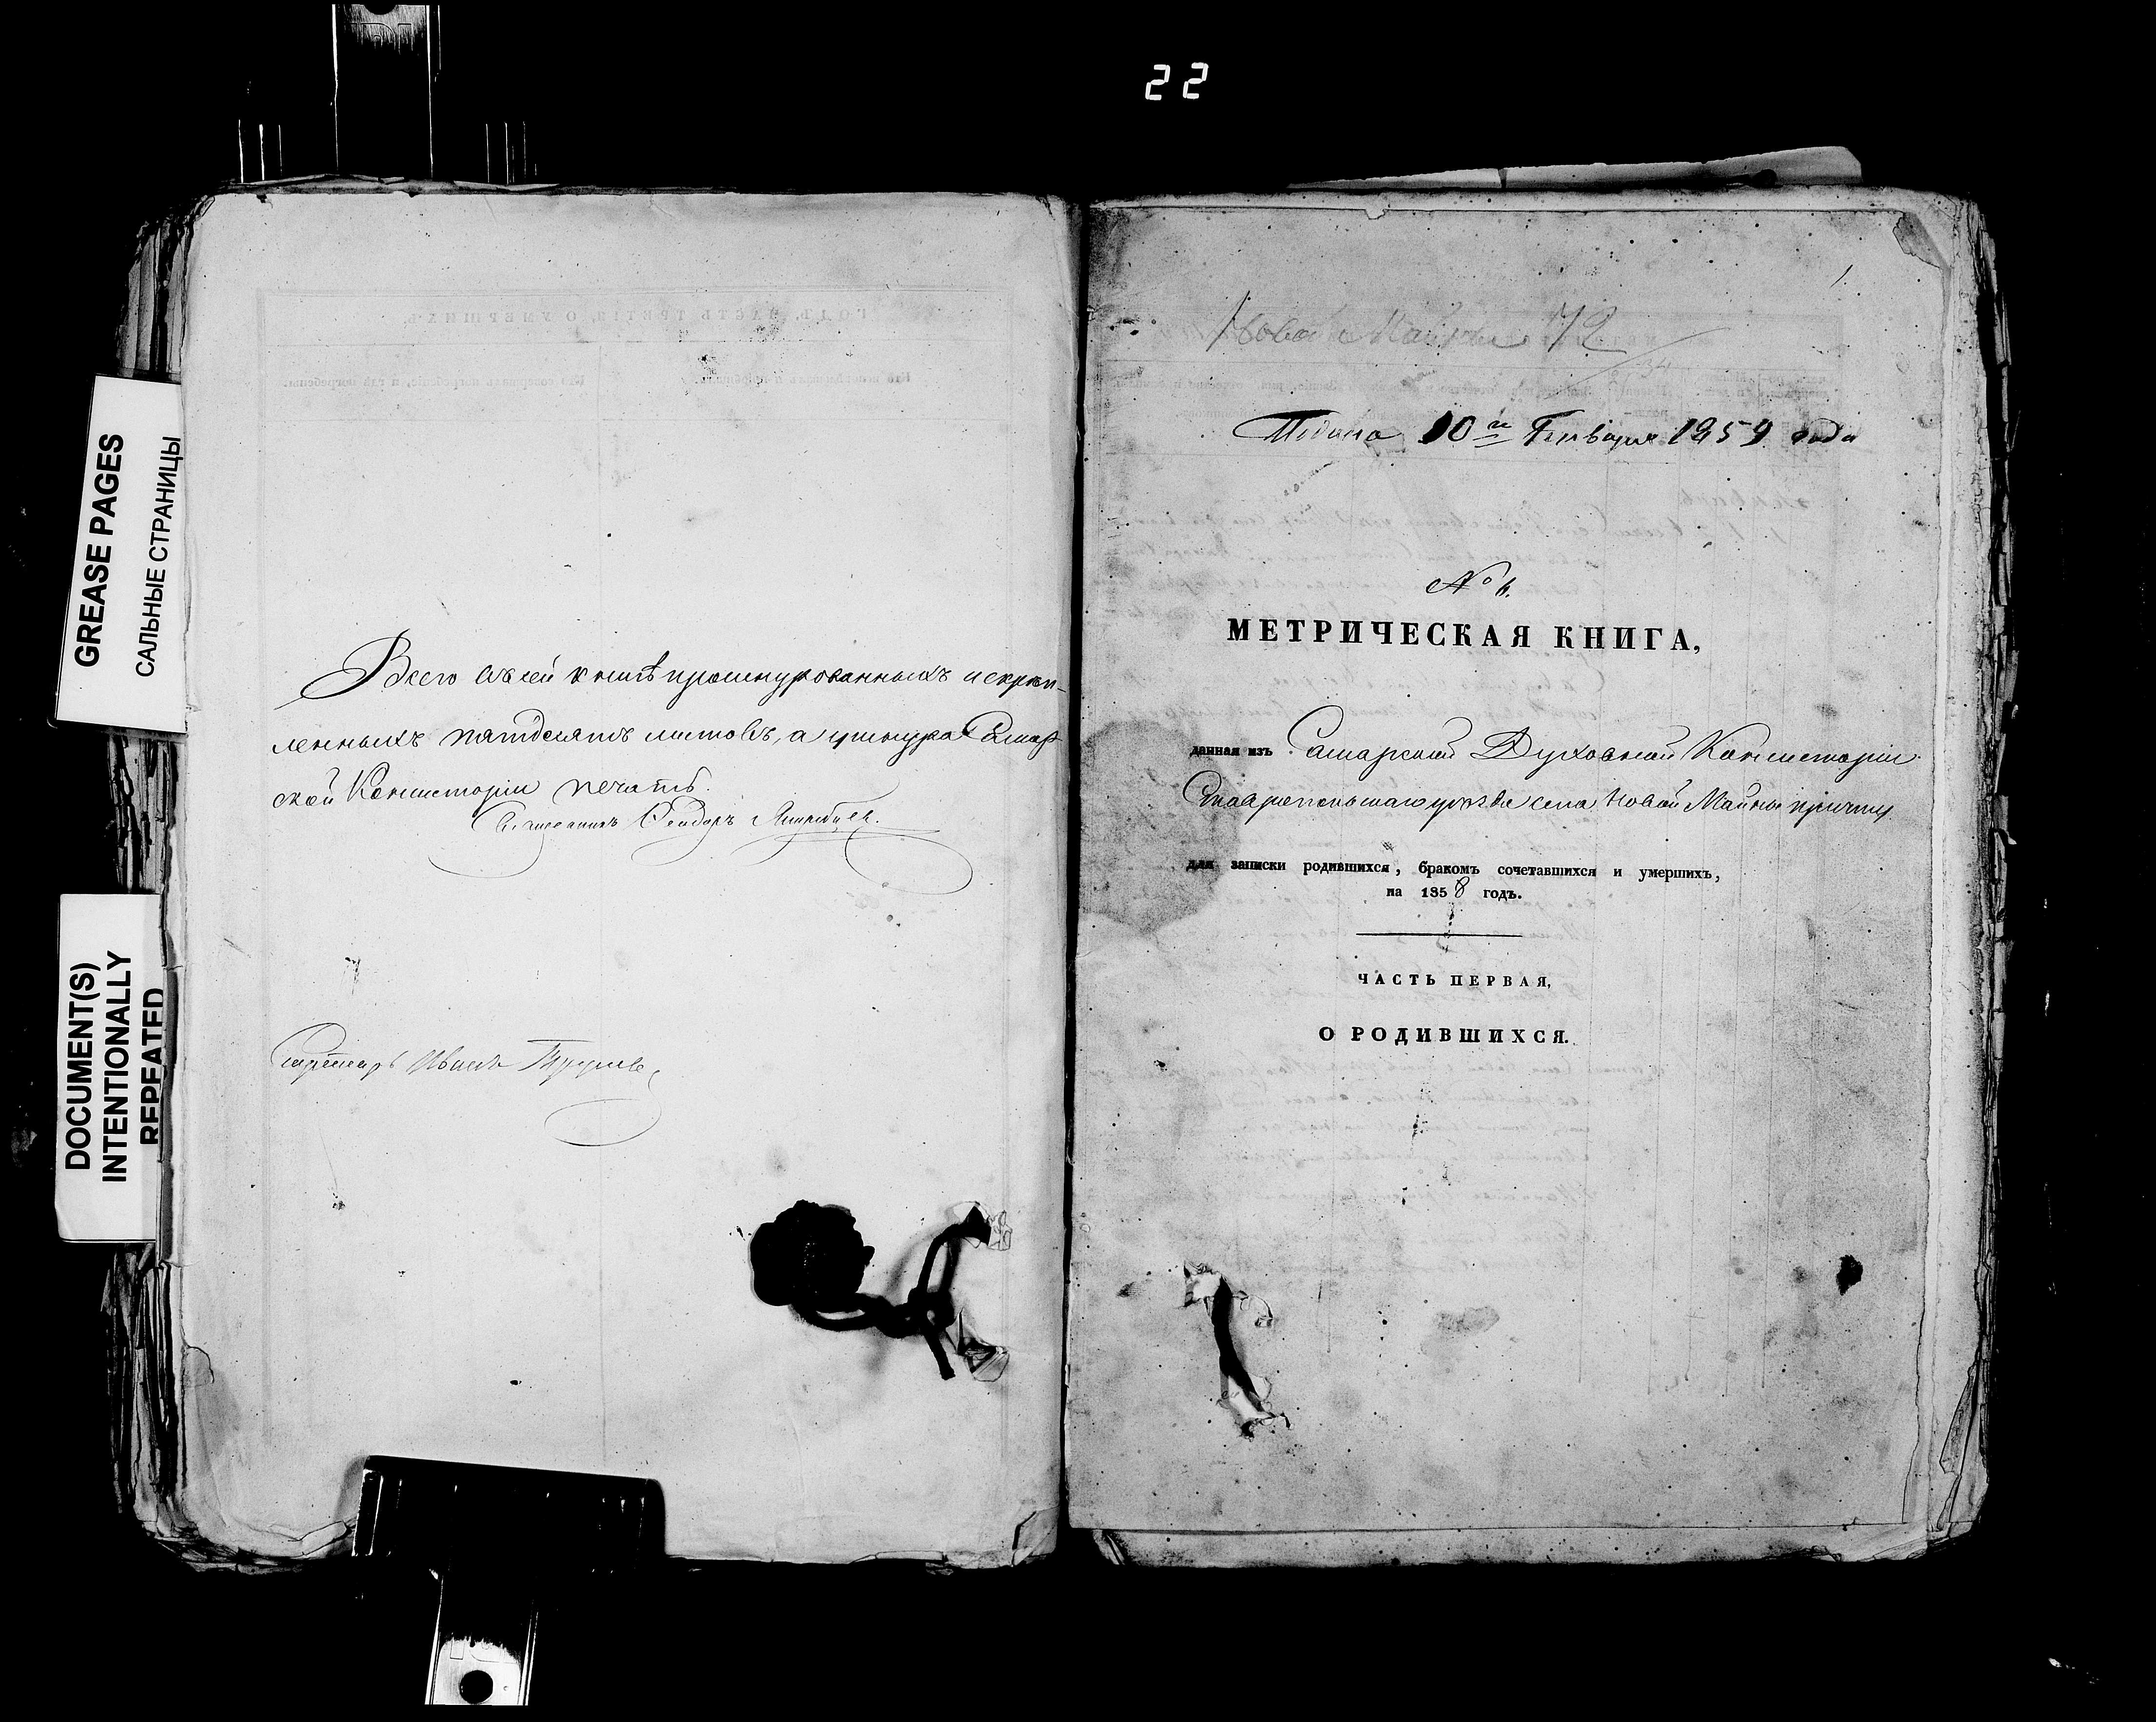 22
GREASE PAGES
САЛЬНЫЕ СТРАНИЦЫ
DOCUMENT(S)
INTENTIONALLY
REPEATED
Всего въ сей книгѣ прошнурованныхъ и скрѣп-
ленныхъ пятдесятъ листовъ, а у шнура Самар
ской Консисторіи печать.
Священникъ Ѳеодоръ
Секретарь Иванъ
1
Новой Майны 72
34
Подана 10го Генваря 1859 года
№ 6.
МЕТРИЧЕСКАЯ КНИГА,
данная изъ Самарской Духовной Консисторіи
Ставропольскаго уѣзда села Новой Майны причту
для записки родившихся, бракомъ сочетавшихся и умершихъ,
на 1858 годъ.
ЧАСТЬ ПЕРВАЯ,
О РОДИВШИХСЯ.